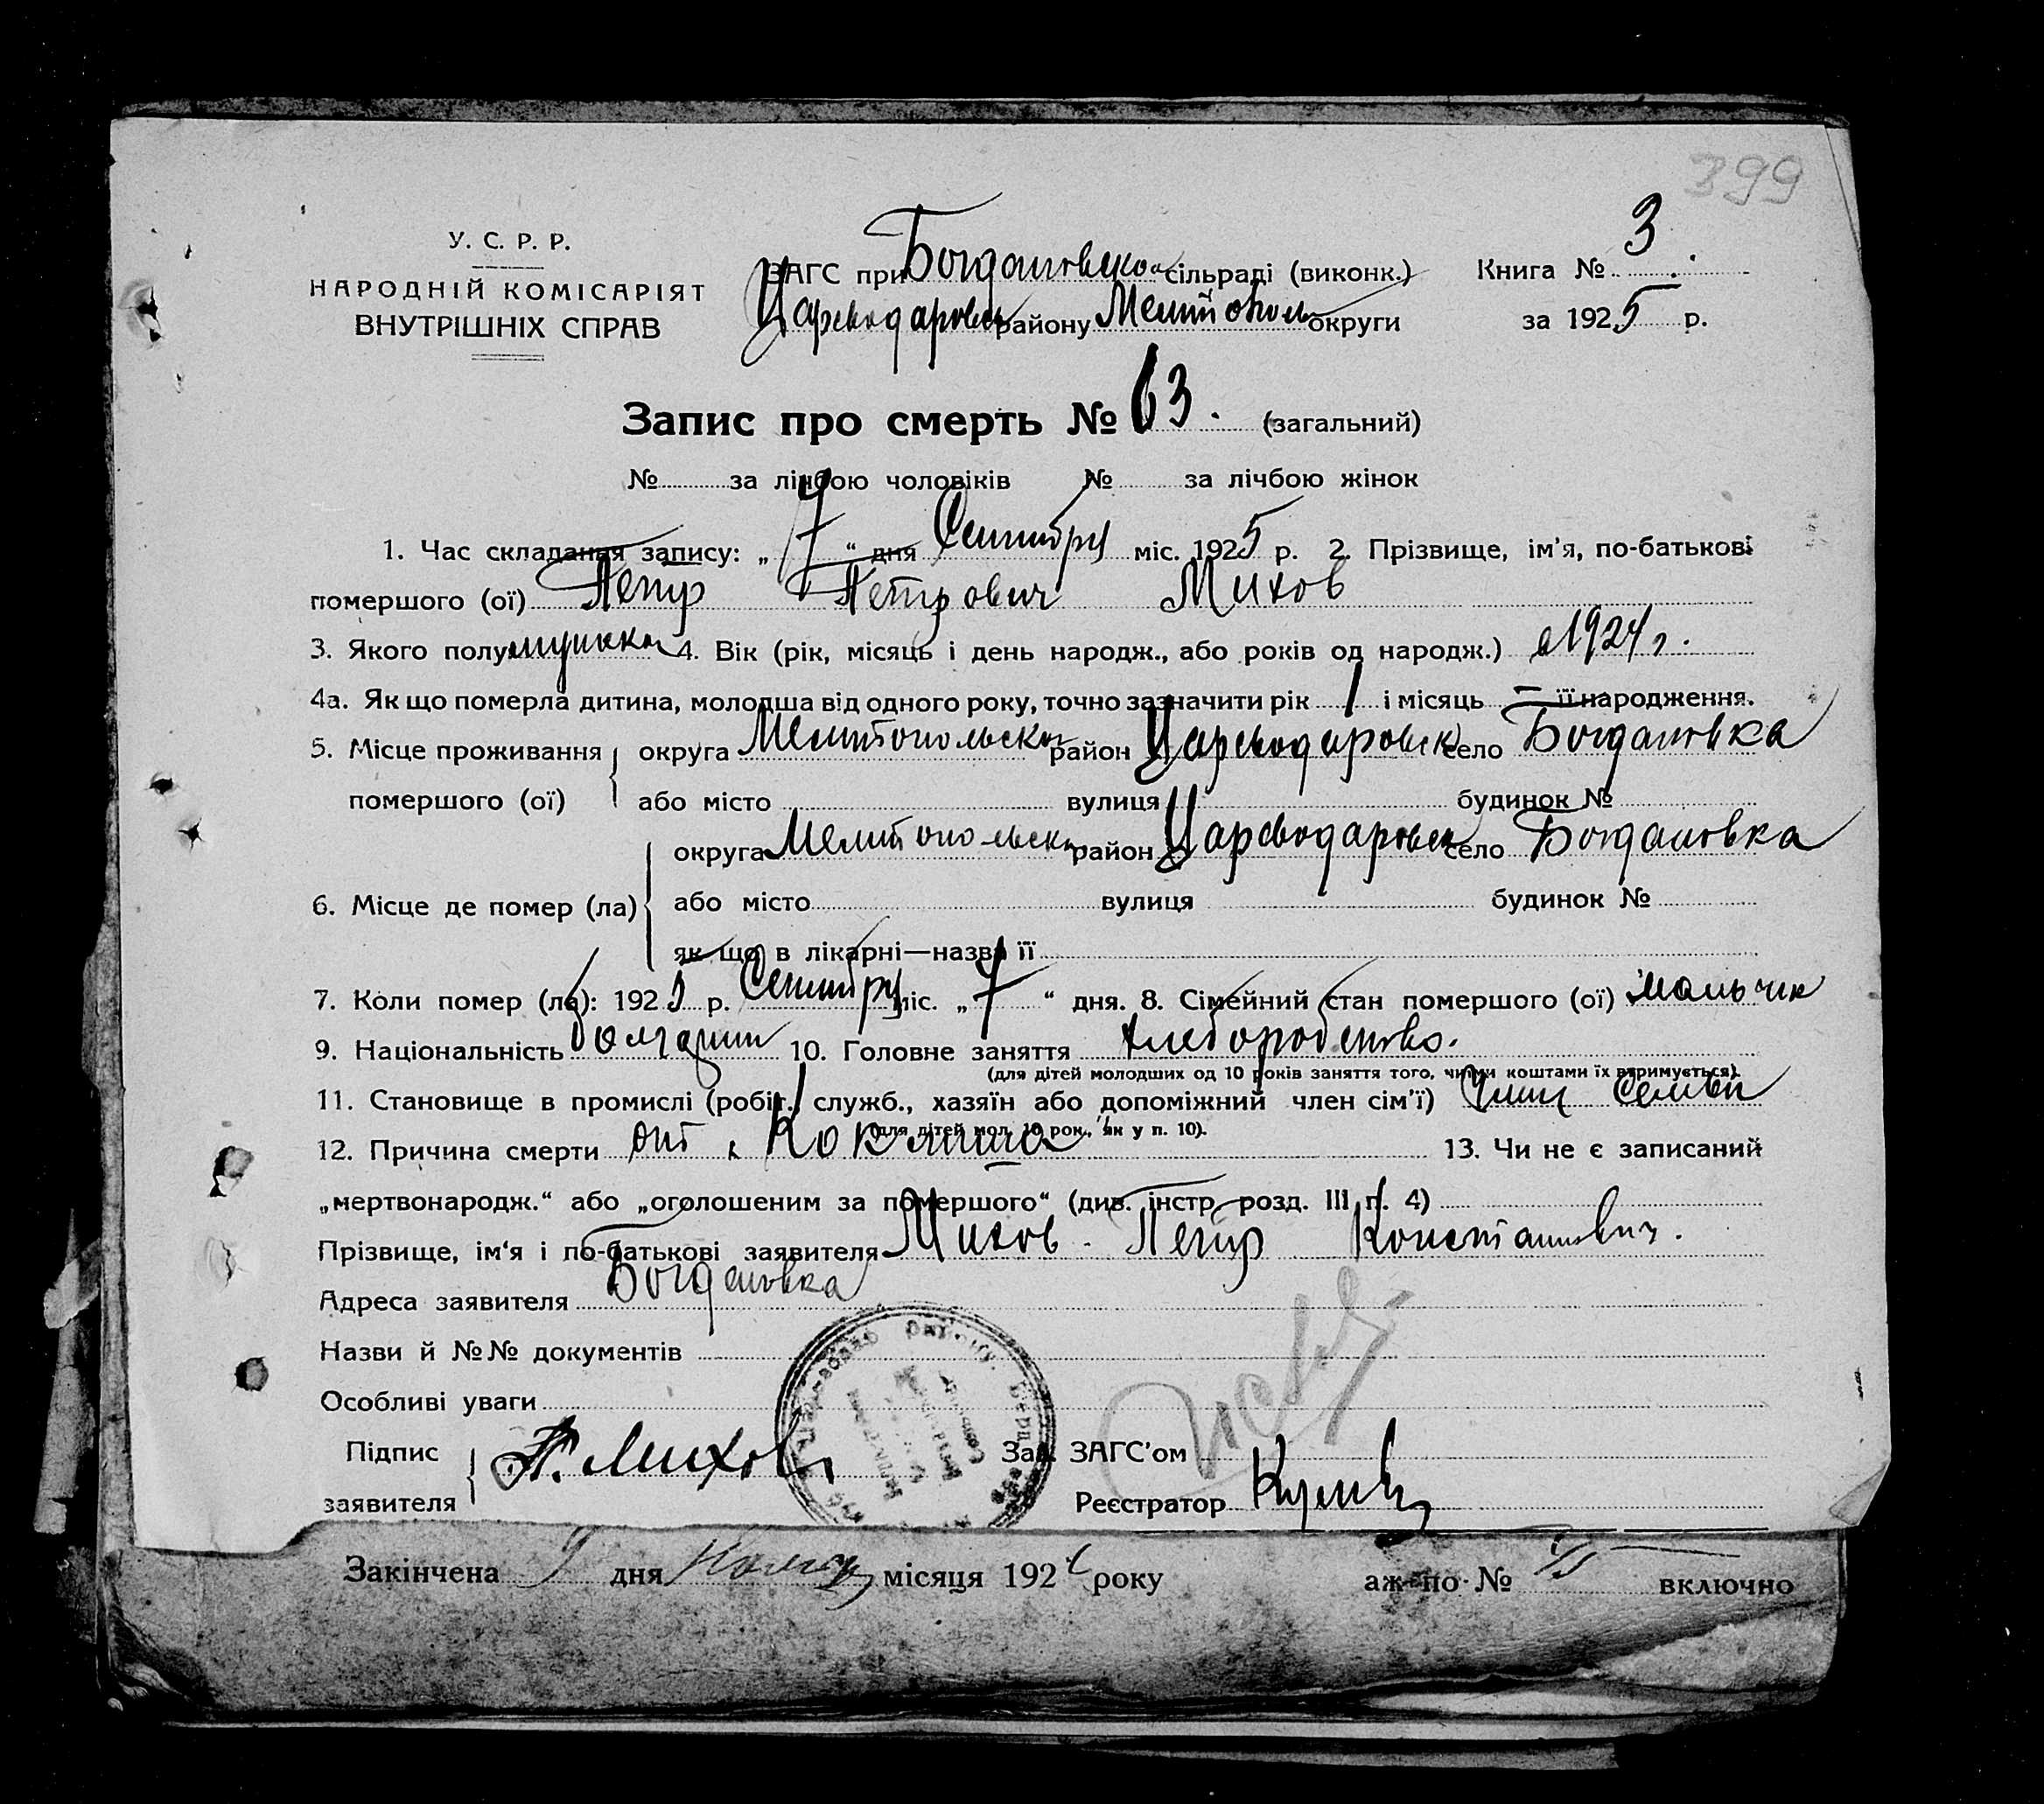 399
У. С. Р. Р.
НАРОДНІЙ КОМІСАРІЯТ
ВНУТРІШНІХ СПРАВ
ЗАГС при Богдановской сільраді (виконк.)
Цареводаровск району Мелитополь округи
Книга № 3
за 1925 р.
Запис про смерть № 63. (загальний)
№ за лічбою чоловіків № за лічбою жінок
1. Час складання запису: „7“ дня Сентября міс. 1925 р. 2. Прізвище, ім'я, по-батькові
помершого (ої) Петр Петрович Михов
3. Якого полу мужска 4. Вік (рік, місяць і день народж., або років од народж.) в 1924 г.
4а. Як що померла дитина, молодша від одного року, точно зазначити рік 1 і місяць — її народження.
5. Місце проживання округа Мелитопольска район Цареводаровск село Богдановка
помершого (ої) або місто вулиця будинок №
округа Мелитопольска район Цареводаровск село Богдановка
6. Місце де помер (ла) або місто вулиця будинок №
як що в лікарні—назва її
7. Коли помер (ла): 1925 р. Сентября міс. „7“ дня. 8. Сімейний стан помершого (ої) мальчик
9. Національність болгарин 10. Головне заняття хлеборобство.
(для дітей молодших од 10 років заняття того, чиїми коштами їх втримується).
11. Становище в промислі (робіт., служб., хазяїн або допоміжний член сім'ї) Член Семьи
(для дітей мол. 10 рок., як у п. 10).
12. Причина смерти от Коклюша 13. Чи не є записаний
„мертвонародж.“ або „оголошеним за помершого“ (див. інстр. розд. III п. 4)
Прізвище, ім'я і по-батькові заявителя Михов Петр Константинович.
Адреса заявителя Богдановка
Назви й №№ документів
Особливі уваги
Підпис
заявителя П. Михов
Зав. ЗАГС'ом
Реєстратор
Закінчена дня місяця 192 року аж по № включно